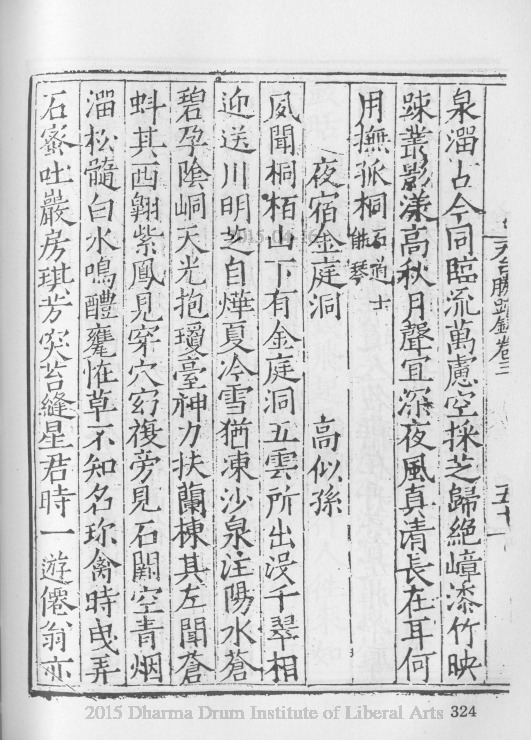 天台勝蹟錄卷三
五十一
泉澑古今同臨流萬慮空採芝歸絶嶂添竹映
踈叢影漾高秋月聲宜深夜風真清長在耳何
用撫孤桐石道士能琴
夜宿金庭洞 高似孫
夙聞桐栢山下有金庭洞五雲所出沒千翠相
迎送川明芝自燁夏冷雪猶凍沙泉注陽水蒼
碧孕陰峒天光抱瓊臺神力扶蘭棟其左聞蒼
蚪其西翺紫鳳見穿穴窈複旁見石闕空青烟
澑松髓白水鳴醴甕恠草不知名珎禽時曳弄
石蜜吐巖房琪芳突苔縫星君時一遊僊翁亦
2015.04.16
2015 Dharma Drum Institute of Liberal Arts 324